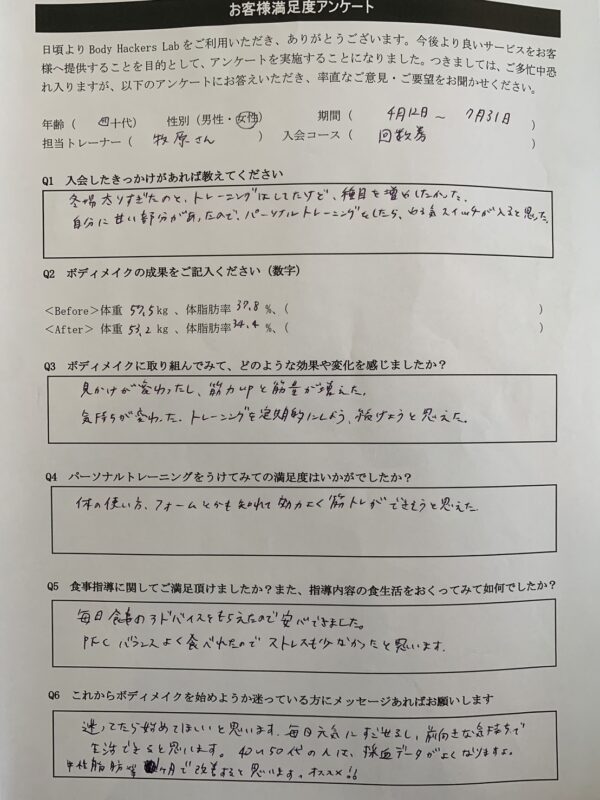 お客様満足度アンケート
日頃より Body Hackers Lab をご利用いただき、ありがとうございます。今後より良いサービスをお客
様へ提供することを目的として、アンケートを実施することになりました。つきましては、ご多忙中恐
れ入りますが、以下のアンケートにお答えいただき、率直なご意見・ご要望をお聞かせください。
年齢( 四十代) 性別(男性・女性) 期間( 4月12日~ 7月31日 )
担当トレーナー( 牧原さん ) 入会コース( 回数券 )
Q1 入会したきっかけがあれば教えてください
冬場太りすぎたのと、トレーニングはしてたけど、種目を増やしたかった。
自分に甘い部分があったので、パーソナルトレーニングをしたら、やる気スイッチが入ると思った。
Q2 ボディメイクの成果をご記入ください(数字)
<Before>体重 57.5 kg 、体脂肪率 37.8 %、( )
<After> 体重 53.2 kg 、体脂肪率 34.4 %、( )
Q3 ボディメイクに取り組んでみて、どのような効果や変化を感じましたか?
見かけが変わったし、筋力upと筋量が増えた。
気持ちが変わった。トレーニングを定期的にしよう、続けようと思えた。
Q4 パーソナルトレーニングをうけてみての満足度はいかがでしたか?
体の使い方、フォームとかも知れて効力よく筋トレができそうと思えた
Q5 食事指導に関してご満足頂けましたか?また、指導内容の食生活をおくってみて如何でしたか?
毎日食事のアドバイスをもらえたので安心できました。
PFCバランスよく食べれたのでストレスも少なかったと思います.
Q6 これからボディメイクを始めようか迷っている方にメッセージあればお願いします
迷ってたら始めてほしいと思います. 毎日元気にすごせるし、前向きな気持ちで
生活できると思います。40~50代の人は、採血データがよくなりますよ。
中性脂肪等 ヶ月で改善すると思います。オススメ!!